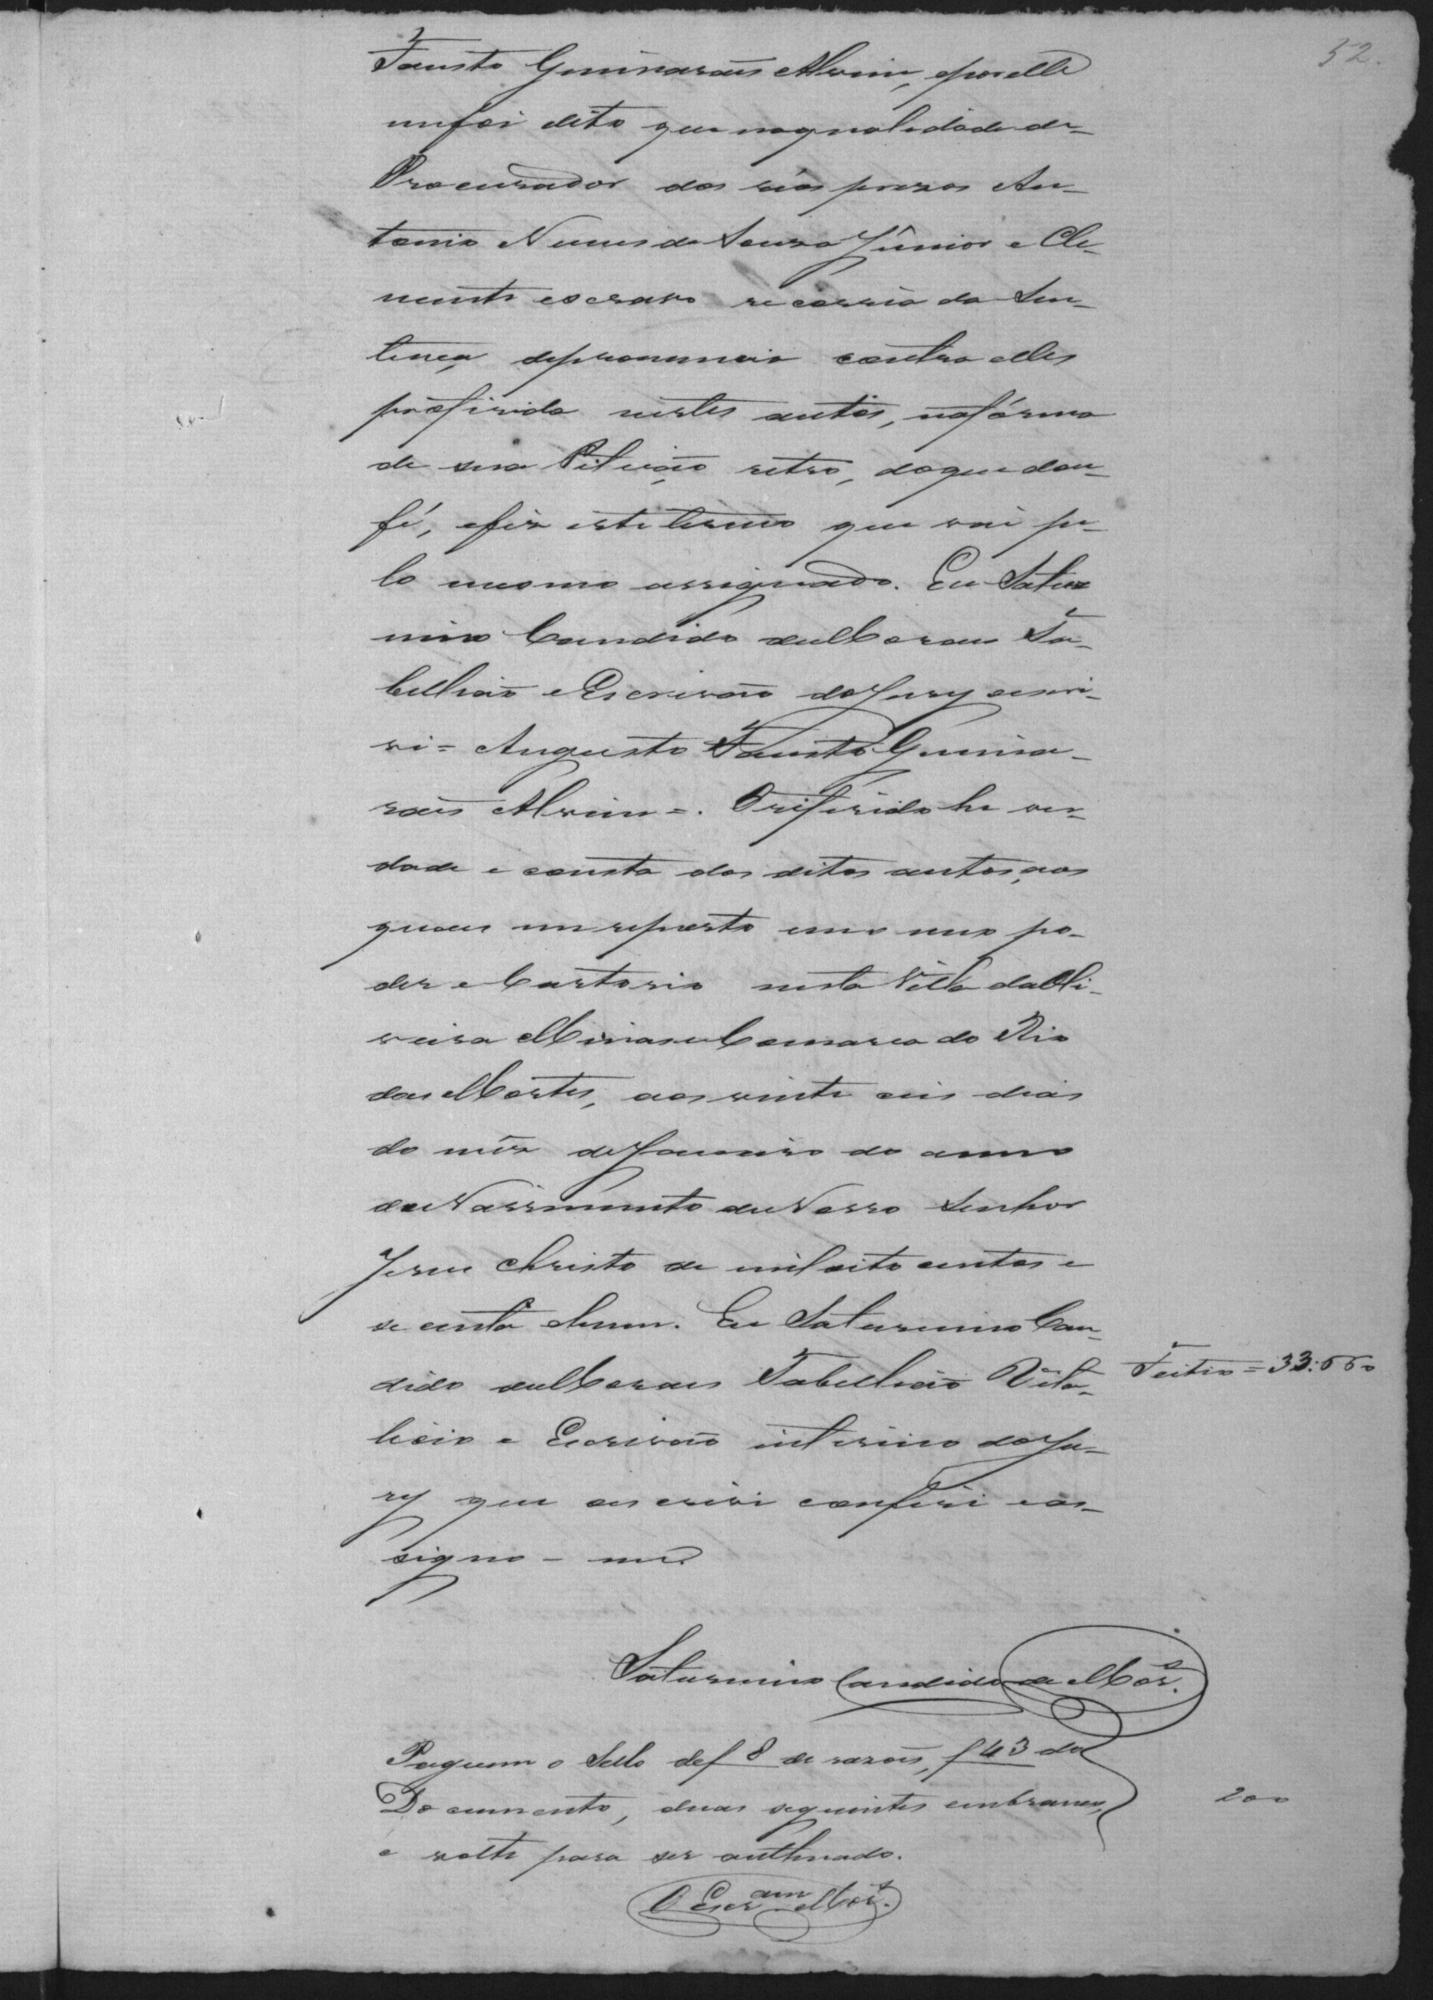 52.
Fausto Guimarães Alvim, e por elle
me foi dito que na qualidade de
Procurador dos réos prezos An-
tonio Nunes de Souza Júnior e Cle-
mente escravo recorria da Sen-
tença de pronuncia contra elles
proferida nestes autos, na fórma
de sua Petição retro, do que dou
fé, e fiz este termo que vai pe-
lo mesmo assignado. Eu Satur
nino Candido de Moraes Ta-
bellião e Escrivão do Jury escri-
vi = Augusto Fausto Guima-
rães Alvim =. O referido he ver-
dade e consta dos ditos autos, aos
quaes me reporto em meo po-
der e Cartorio nesta Villa da Oli-
veira Minas e Comarca do Rio
das Mortes, aos vinte seis dias
do mêz de Janeiro do anno
do Nascimento de Nosso Senhor
Jesus Christo de mil oito centos e
secenta e hum. Eu Saturnino Can-
dido de Moraes Tabellião Vita-
Feitio = 33:660
licio e Escrivão interino do Ju-
ry que escrivi conferi e as-
signo-me
Saturnino Candido de Mor.s
Paguem o Sello de f 8 de razões, f 43 do
Documento, duas seguintes em branco,
200
e volte para ser authuado.
O Escr.am Mor.s